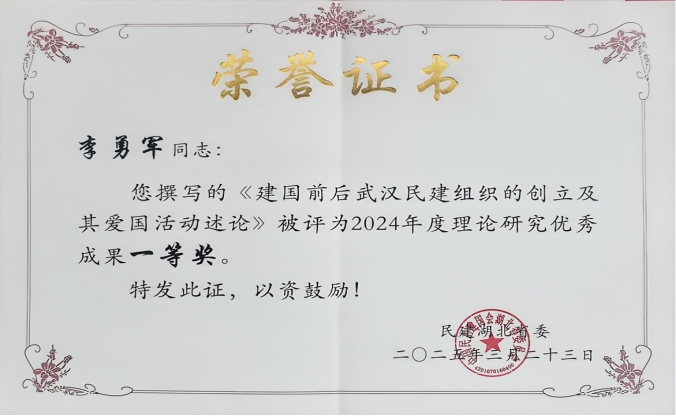 荣誉证书
李勇军同志：
您撰写的《建国前后武汉民建组织的创立及
其爱国活动述论》被评为2024年度理论研究优秀
成果一等奖。
特发此证，以资鼓励！
民建湖北省委
二〇二五年三月二十三日